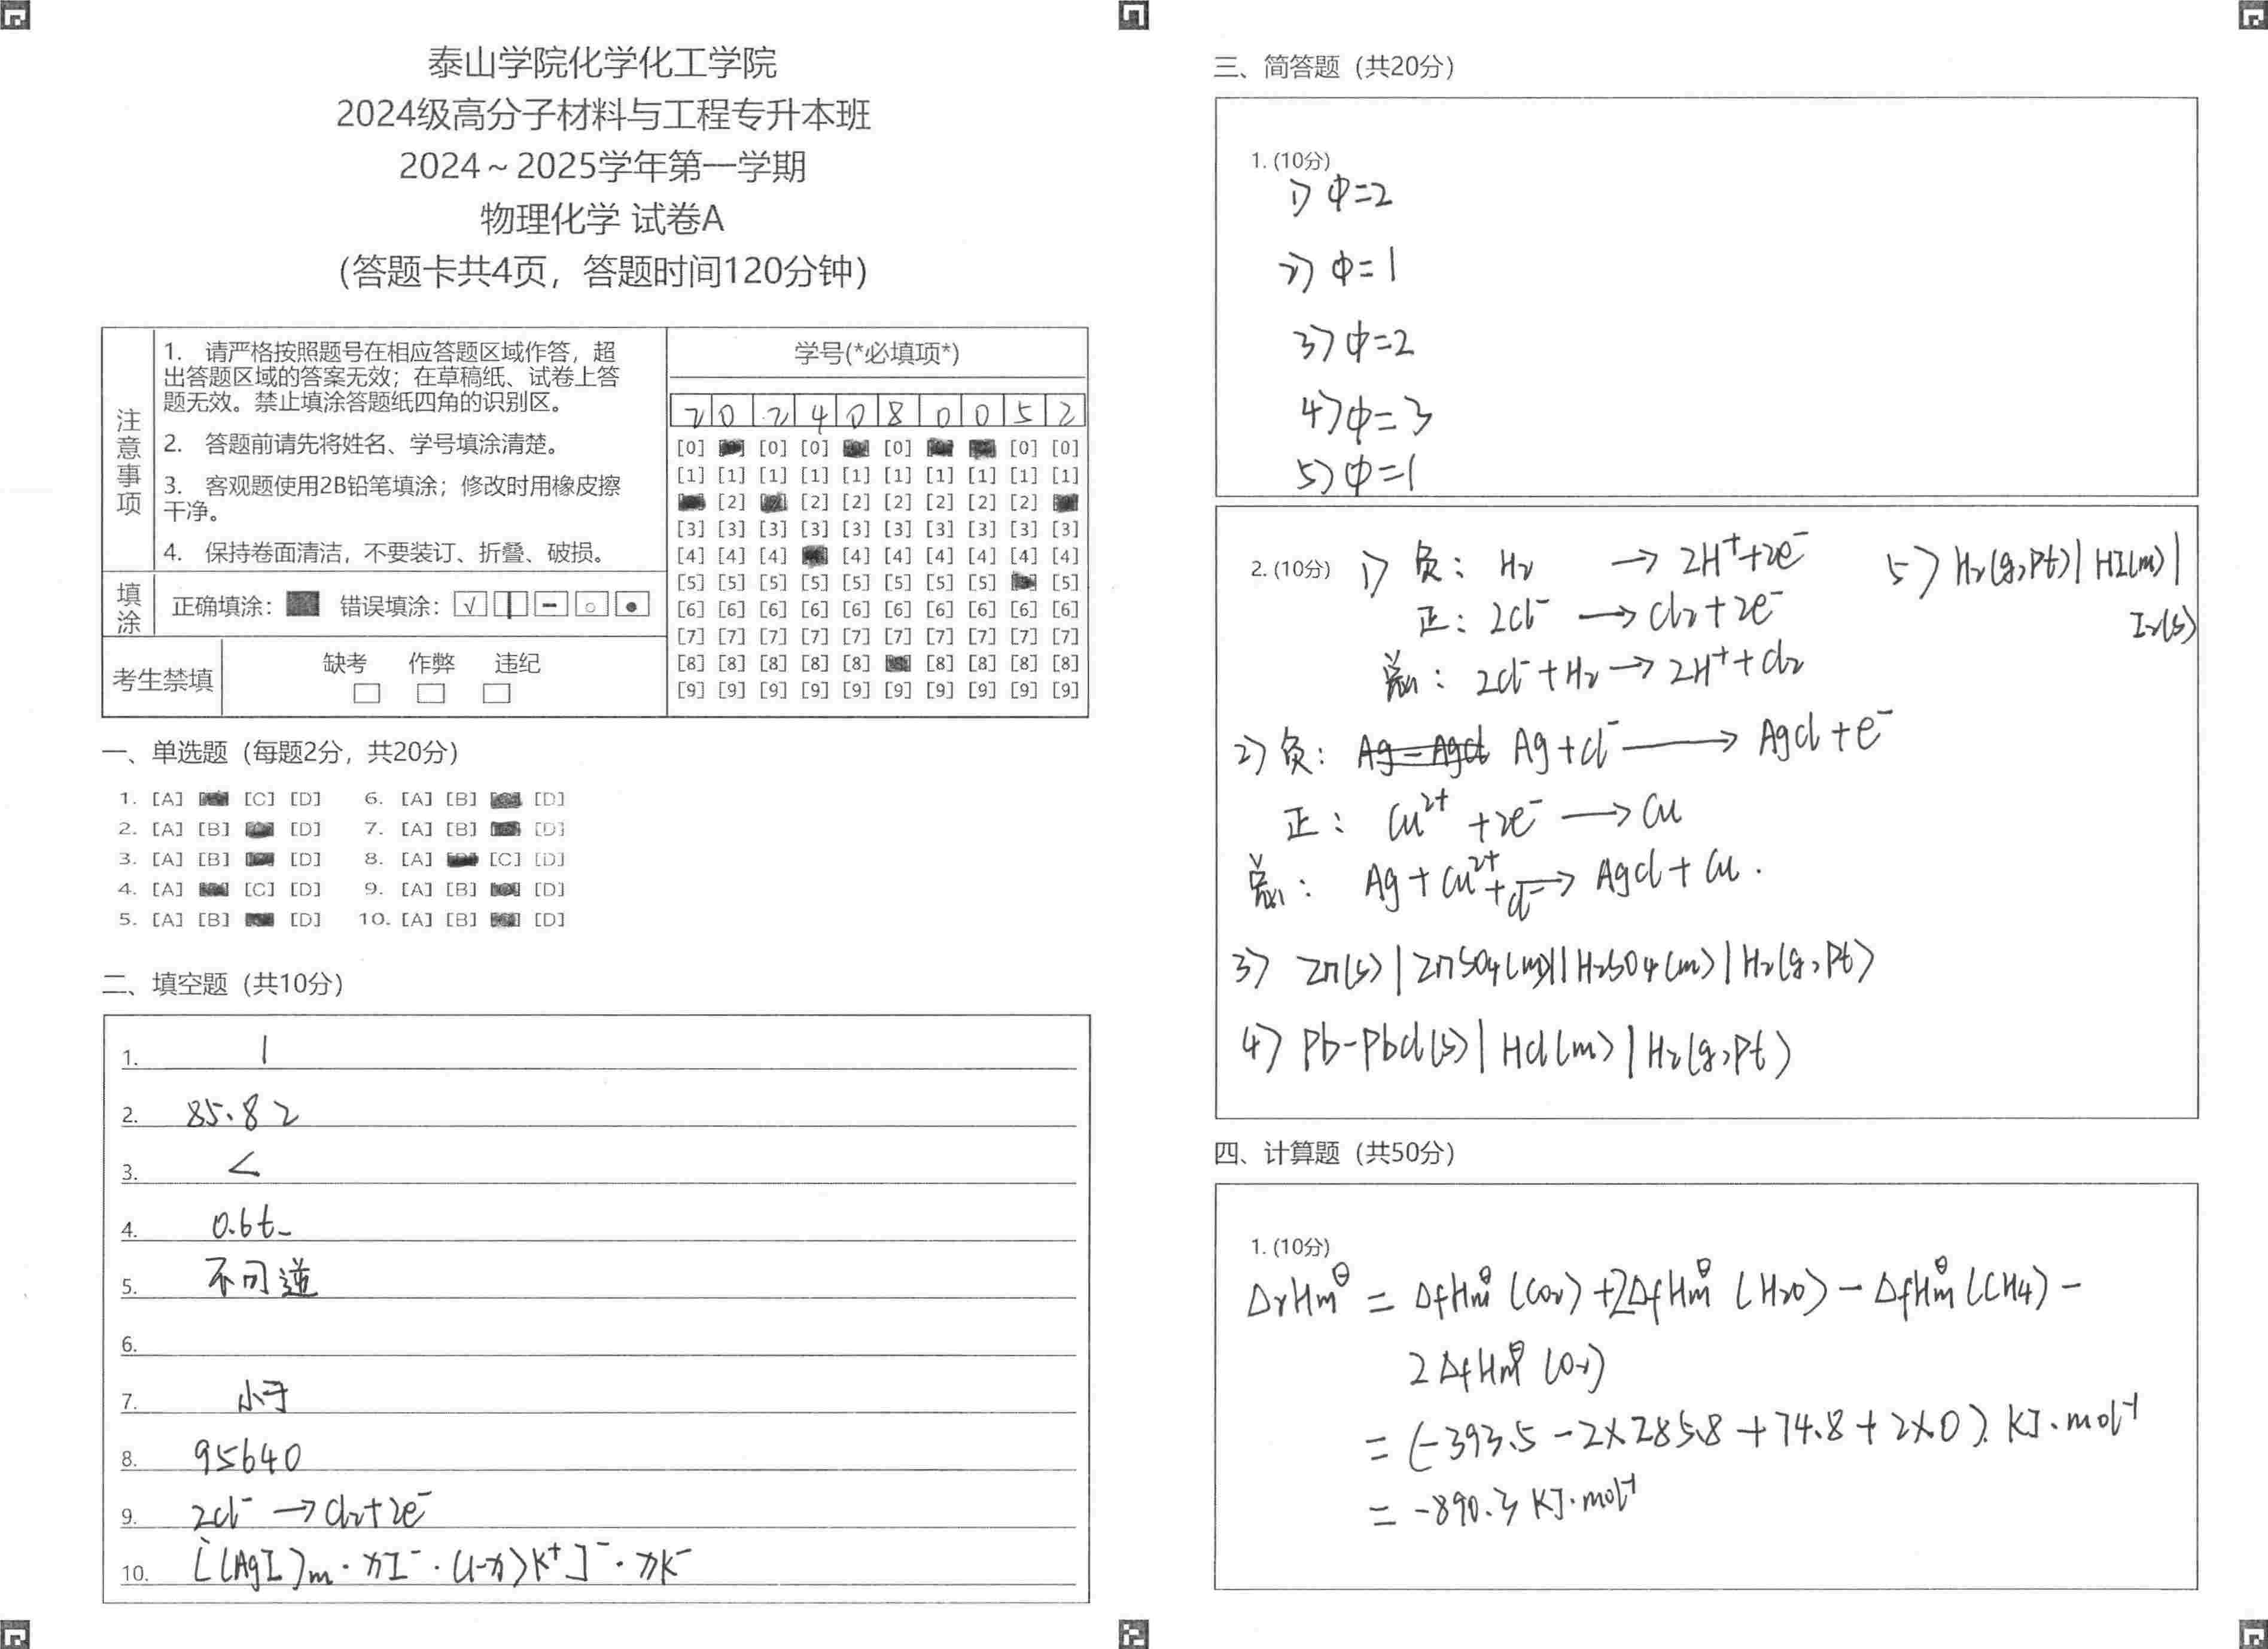 泰山学院化学化工学院
2024级高分子材料与工程专升本班
2024～2025学年第一学期
物理化学 试卷A
（答题卡共4页，答题时间120分钟）
注意事项
1. 请严格按照题号在相应答题区域作答，超
出答题区域的答案无效；在草稿纸、试卷上答
题无效。禁止填涂答题纸四角的识别区。
2. 答题前请先将姓名、学号填涂清楚。
3. 客观题使用2B铅笔填涂；修改时用橡皮擦
干净。
4. 保持卷面清洁，不要装订、折叠、破损。
填涂
正确填涂： 错误填涂： √
考生禁填
缺考 作弊 违纪
学号(*必填项*)
2 0 2 4 0 8 0 0 5 2
[0] [0] [0] [0] [0] [0]
[1] [1] [1] [1] [1] [1] [1] [1] [1] [1]
[2] [2] [2] [2] [2] [2] [2]
[3] [3] [3] [3] [3] [3] [3] [3] [3] [3]
[4] [4] [4] [4] [4] [4] [4] [4] [4]
[5] [5] [5] [5] [5] [5] [5] [5] [5]
[6] [6] [6] [6] [6] [6] [6] [6] [6] [6]
[7] [7] [7] [7] [7] [7] [7] [7] [7] [7]
[8] [8] [8] [8] [8] [8] [8] [8] [8]
[9] [9] [9] [9] [9] [9] [9] [9] [9] [9]
一、单选题（每题2分，共20分）
1. [A] [C] [D] 6. [A] [B] [D]
2. [A] [B] [D] 7. [A] [B] [D]
3. [A] [B] [D] 8. [A] [C] [D]
4. [A] [C] [D] 9. [A] [B] [D]
5. [A] [B] [D] 10. [A] [B] [D]
二、填空题（共10分）
1. 1
2. 85.82
3. <
4. 0.6t-
5. 不可逆
6.
7. 小于
8. 95640
9. 2Cl⁻ → Cl₂+2e⁻
10. [(AgI)m·nI⁻·(1-n)K⁺]⁻·nK⁻
三、简答题（共20分）
1. (10分)
1) Φ=2
2) Φ=1
3) Φ=2
4) Φ=3
5) Φ=1
2. (10分) 1) 负： H₂ → 2H⁺+2e⁻
正： 2Cl⁻ → Cl₂+2e⁻
总： 2Cl⁻+H₂ → 2H⁺+Cl₂
5) H₂(g,Pt)| HI(m)|
I₂(s)
2) 负： Ag+Cl⁻ → AgCl+e⁻
正： Cu²⁺+2e⁻ → Cu
总： Ag+Cu²⁺+Cl⁻ → AgCl+Cu.
3) Zn(s)|ZnSO₄(m)||H₂SO₄(m)|H₂(g,Pt)
4) Pb-PbCl(s)|HCl(m)|H₂(g,Pt)
四、计算题（共50分）
1. (10分)
ΔrHm^θ = ΔfHm^θ(CO₂)+2ΔfHm^θ(H₂O)-ΔfHm^θ(CH₄)-
2ΔfHm^θ(O₂)
= (-393.5-2×285.8+74.8+2×0) KJ·mol⁻¹
= -890.3 KJ·mol⁻¹